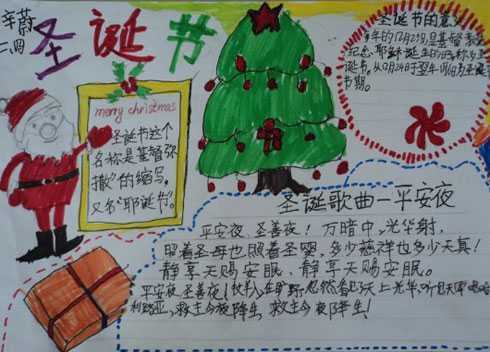 辛蔚
二、四
圣诞节
merry christmas
圣诞节这个
名称是基督弥
撒”的缩写。
又名“耶诞节”。
圣诞节的意义
年的12月25日,是基督教
纪念耶稣诞生的日,称为圣
诞节。从12月24日于翌年1月6日为圣诞
节期。
圣诞歌曲—平安夜
平安夜、圣善夜!万暗中,光华射,
照着圣母也照着圣婴,多少慈祥也多少天真!
静享天赐安眠、静享天赐安眠。
平安夜,圣善夜!牧羊人,在旷野,忽然看见了天上光华,听见天军唱哈
利路亚,救主今夜降生,救主今夜降生!